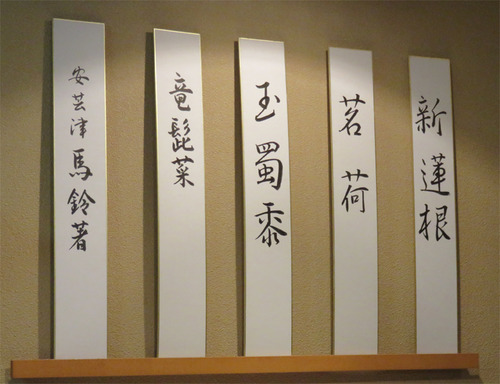 新蓮根
茗荷
玉蜀黍
竜髭菜
安芸津馬鈴著